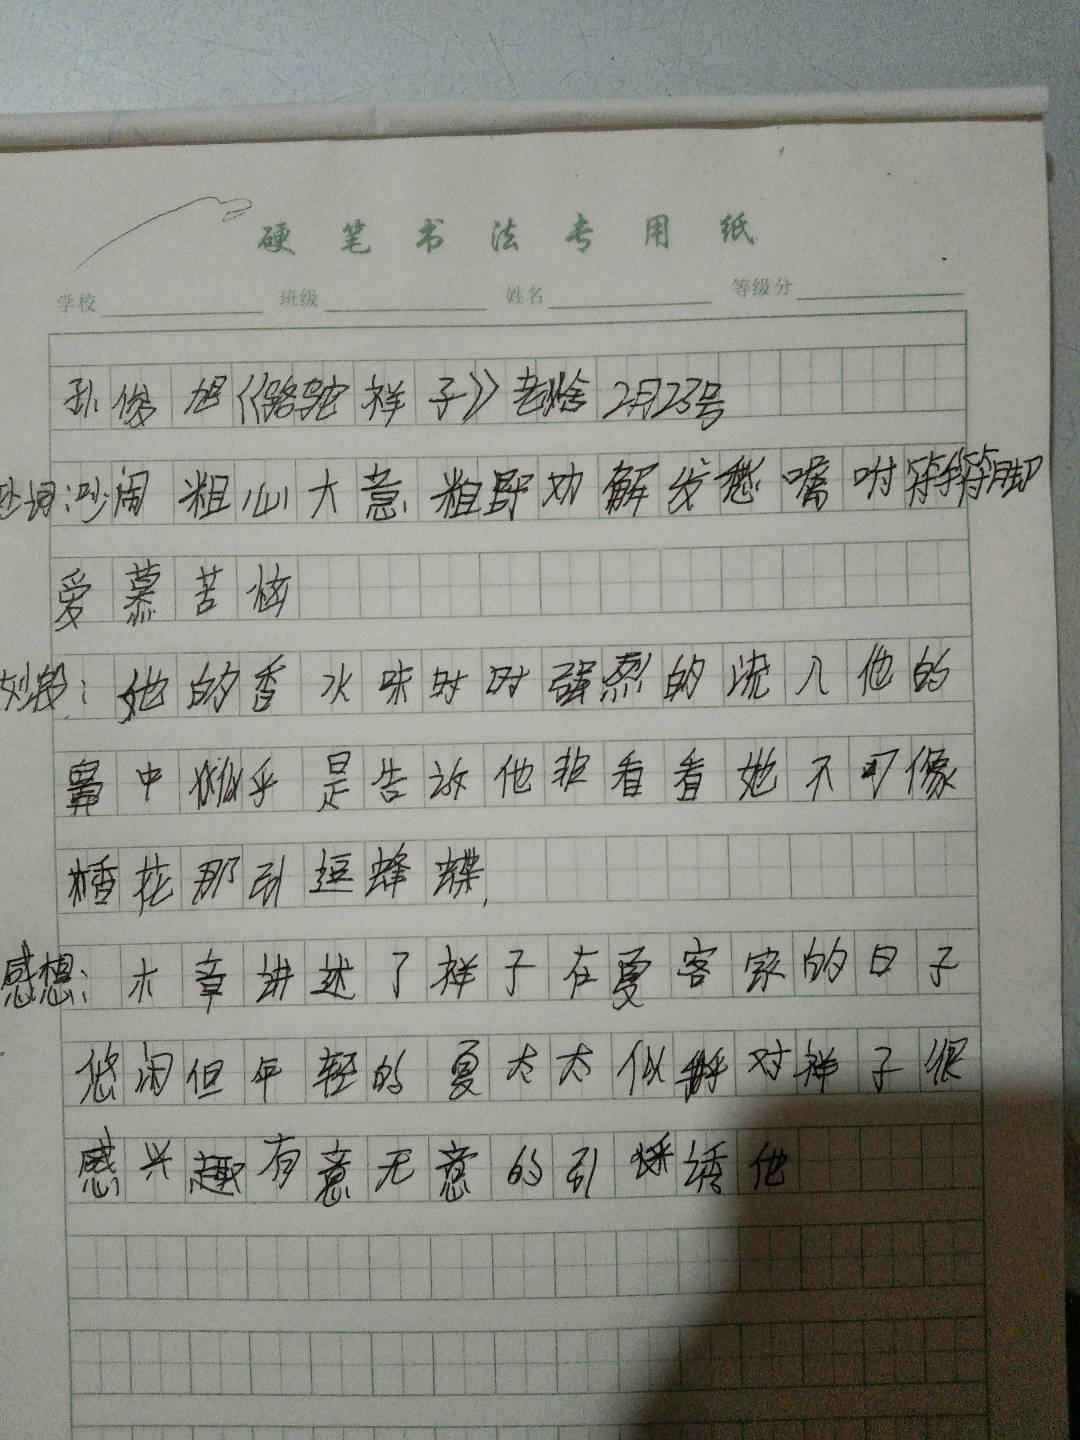 硬笔书法专用纸
学校 班级 姓名 等级分
孙俊旭《骆驼祥子》老舍 2月23号
妙词:吵闹 粗心大意 粗野 劝解 发愁 嘱咐 蹑手蹑脚
爱慕 苦恼
妙段:她的香水味时时强烈的流入他的
鼻中似乎是告诉他非看看她不可像
香花那引逗蜂蝶
感想:本章讲述了祥子在夏客家的日子
悠闲但年轻的夏太太似乎对祥子很
感兴趣有意无意的引诱他